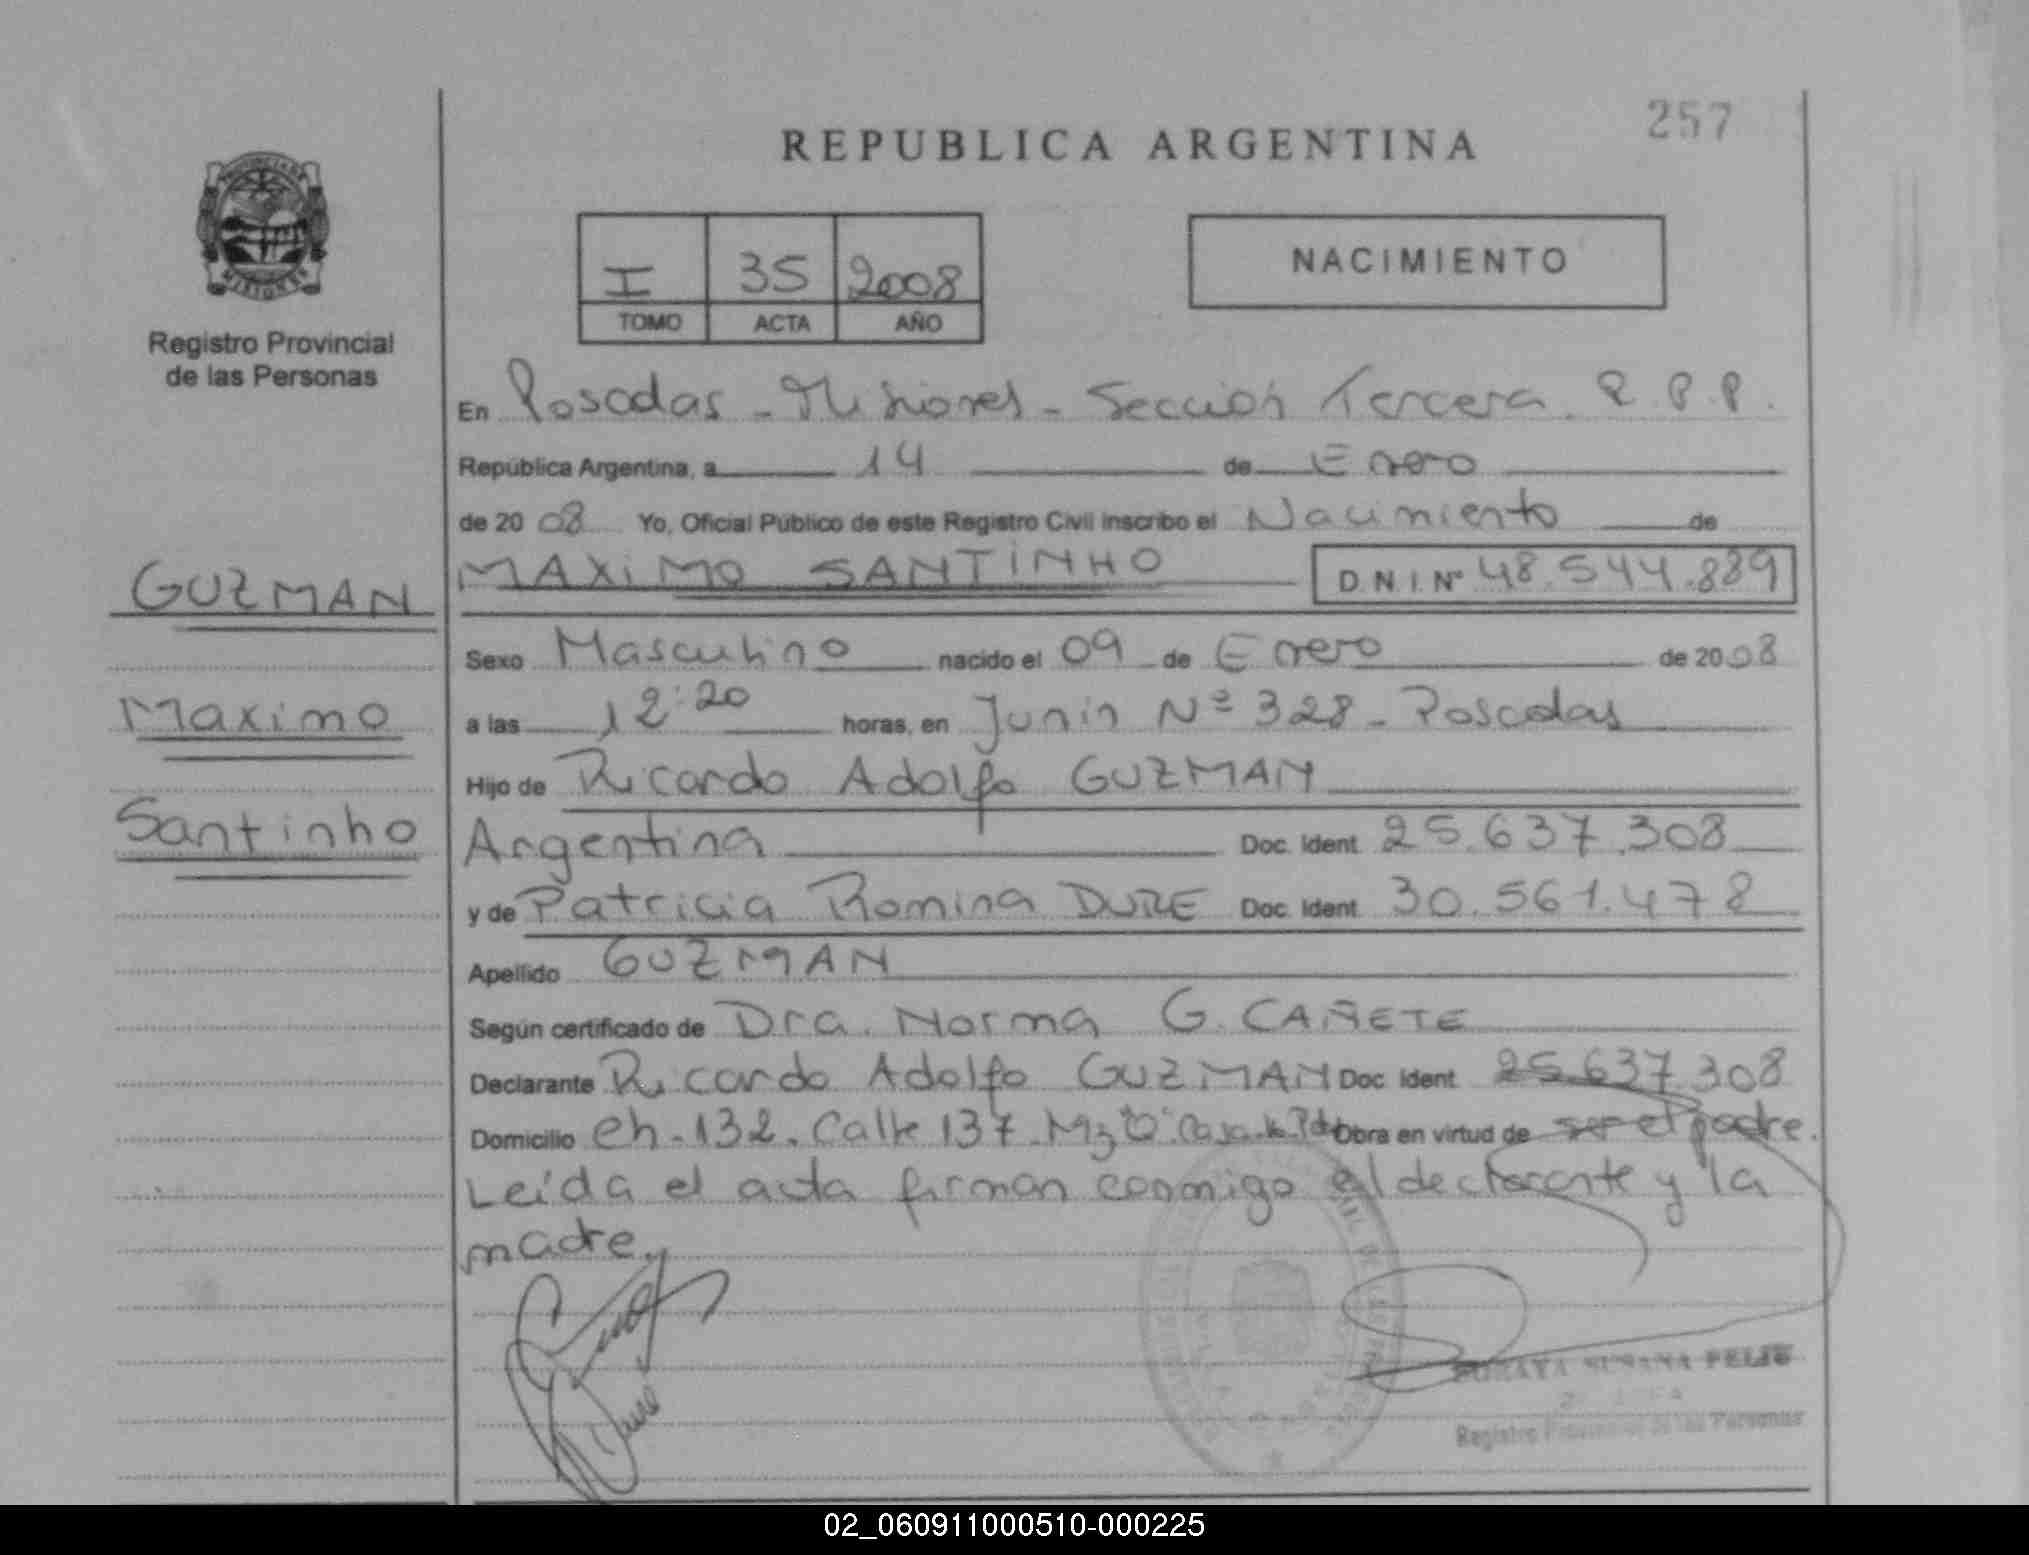 257
REPUBLICA ARGENTINA
PROVINCIA DE
MISIONES
Registro Provincial
de las Personas
I 35 2008
TOMO ACTA AÑO
NACIMIENTO
En Posadas - Misiones - Sección Tercera. R.P.P.
República Argentina, a 14 de Enero
de 2008 Yo, Oficial Público de este Registro Civil inscribo el Nacimiento de
MAXIMO SANTINHO D.N.I. Nº 48.544.889
GUZMAN
Maximo
Santinho
Sexo Masculino nacido el 09 de Enero de 2008
a las 12:20 horas, en Junin Nº 328 - Posadas
Hijo de Ricardo Adolfo GUZMAN
Argentina Doc. Ident. 25.637.308
y de Patricia Romina DURE Doc. Ident. 30.561.478
Apellido GUZMAN
Según certificado de Dra. Norma G. CAÑETE
Declarante Ricardo Adolfo GUZMAN Doc. Ident. 25.637.308
Domicilio Ch. 132. Calle 137. Mz "O" Casa Obra en virtud de ser el padre.
Leída el acta firman conmigo el declarante y la
madre
Dure
SUSANA FELIU
Registro Provincial de las Personas
02_060911000510-000225